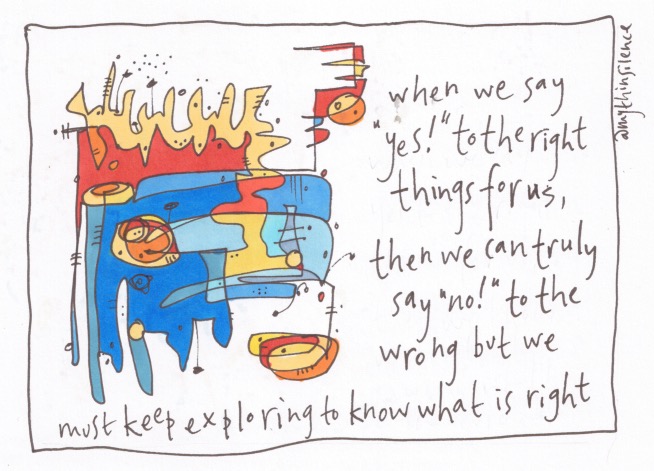 when we say
"yes!" to the right
things for us,
then we can truly
say "no!" to the
wrong but we
must keep exploring to know what is right
amythinsilence